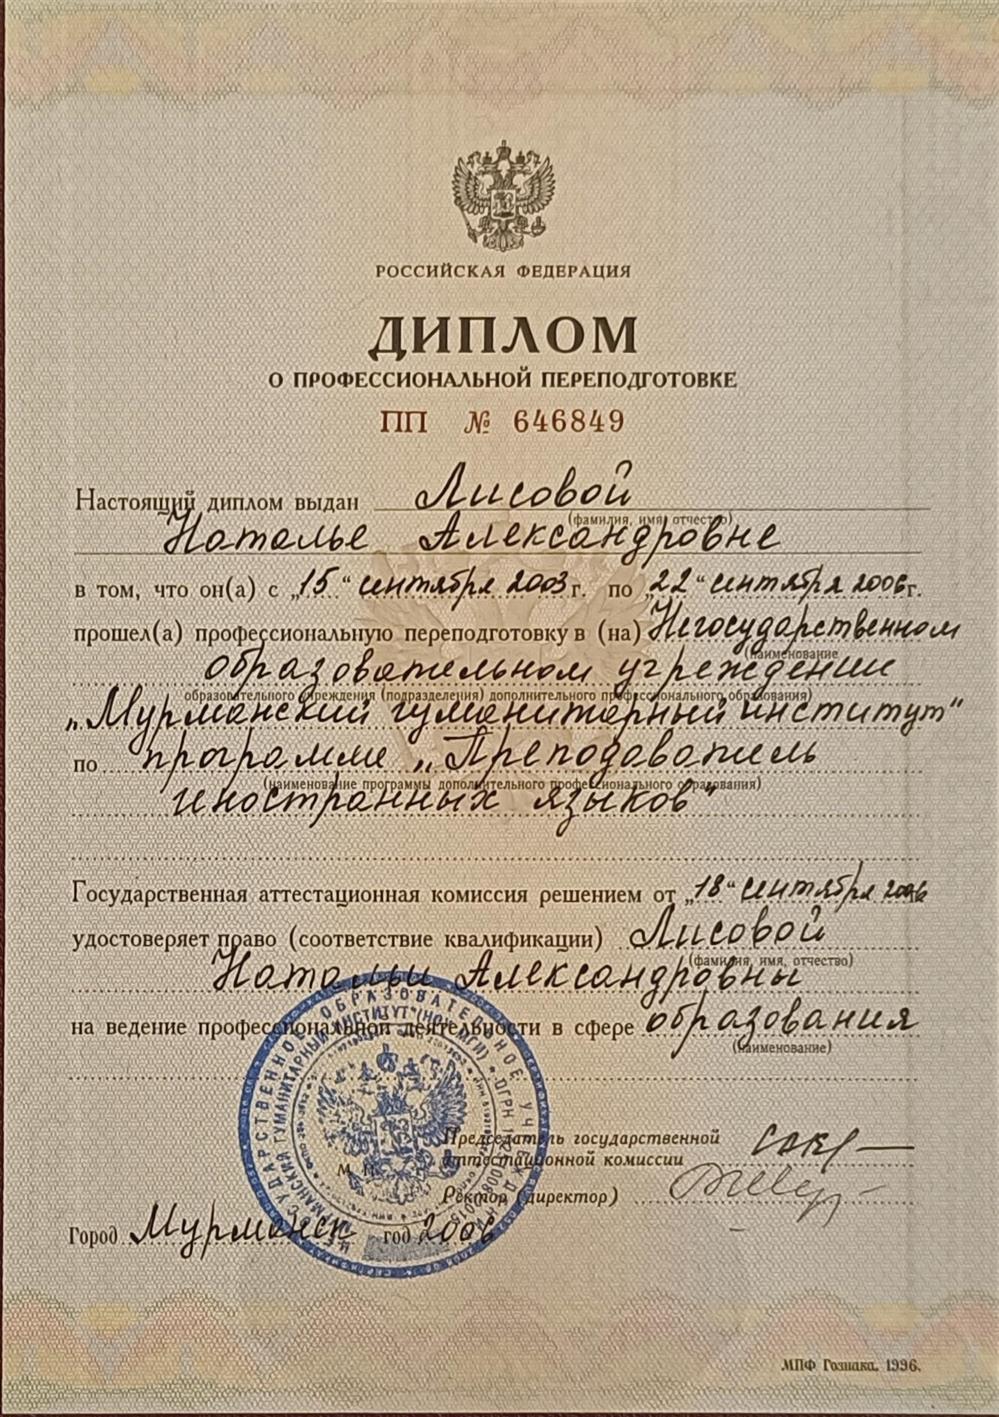 РОССИЙСКАЯ ФЕДЕРАЦИЯ
ДИПЛОМ
О ПРОФЕССИОНАЛЬНОЙ ПЕРЕПОДГОТОВКЕ
ПП № 646849
Настоящий диплом выдан Лисовой
(фамилия, имя, отчество)
Наталье Александровне
в том, что он(а) с „15“ сентября 2003 г. по „22“ сентября 2006 г.
прошел(а) профессиональную переподготовку в (на) Негосударственном
(наименование
образовательном учреждении
образовательного учреждения (подразделения) дополнительного профессионального образования)
„Мурманский гуманитарный институт“
по программе „Преподаватель
(наименование программы дополнительного профессионального образования)
иностранных языков“
Государственная аттестационная комиссия решением от „18“ сентября 2006
удостоверяет право (соответствие квалификации) Лисовой
(фамилия, имя, отчество)
Натальи Александровны
на ведение профессиональной деятельности в сфере образования
(наименование)
Председатель государственной
аттестационной комиссии
М. П.
Ректор (директор)
Город Мурманск год 2006
МПФ Гознака. 1996.